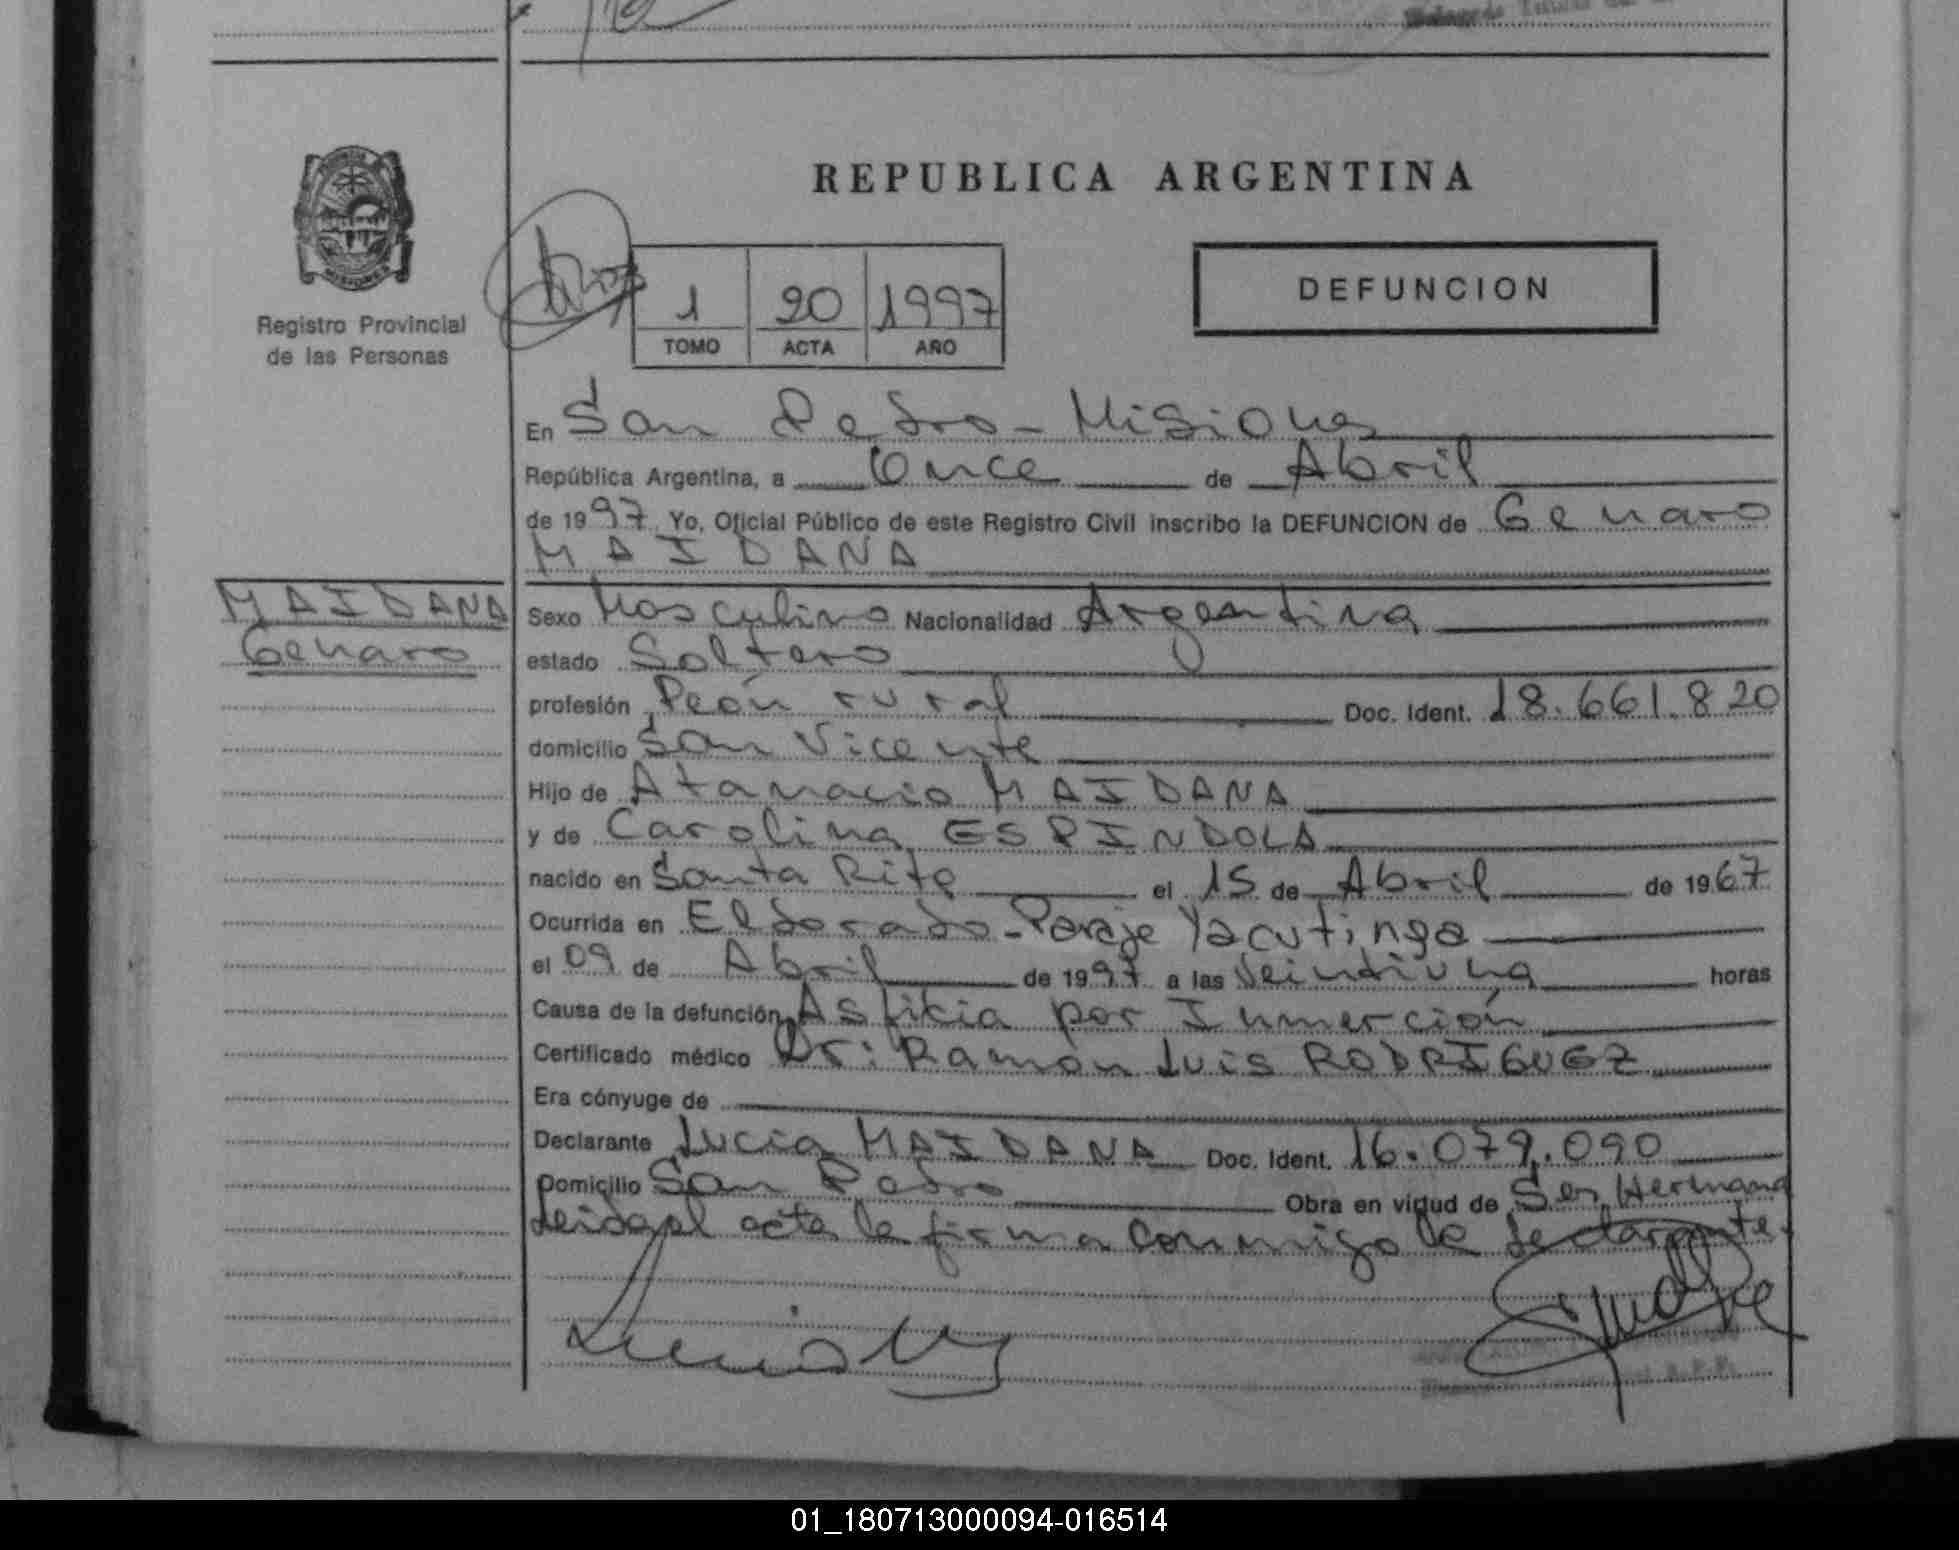 REPUBLICA ARGENTINA
DEFUNCION
MISIONES
Registro Provincial
de las Personas
1 20 1997
TOMO ACTA AÑO
En San Pedro - Misiones
República Argentina, a Once de Abril
de 1997 Yo, Oficial Público de este Registro Civil inscribo la DEFUNCION de Genaro
MAIDANA
MAIDANA
Genaro
Sexo Masculino Nacionalidad Argentina
estado Soltero
profesión Peón rural Doc. Ident. 18.661.820
domicilio San Vicente
Hijo de Atanacio MAIDANA
y de Carolina ESPINDOLA
nacido en Santa Rita el 15 de Abril de 1967
Ocurrida en Eldorado - Paraje Yacutinga
el 09 de Abril de 1997 a las Veintiuna horas
Causa de la defunción Asfikia por Inmerción
Certificado médico Dr: Ramon Luis RODRIGUEZ
Era cónyuge de
Declarante Lucia MAIDANA Doc. Ident. 16.079.090
Domicilio San Pedro Obra en virtud de Ser Hermana
Leida el acta la firma conmigo la declarante.
01_180713000094-016514